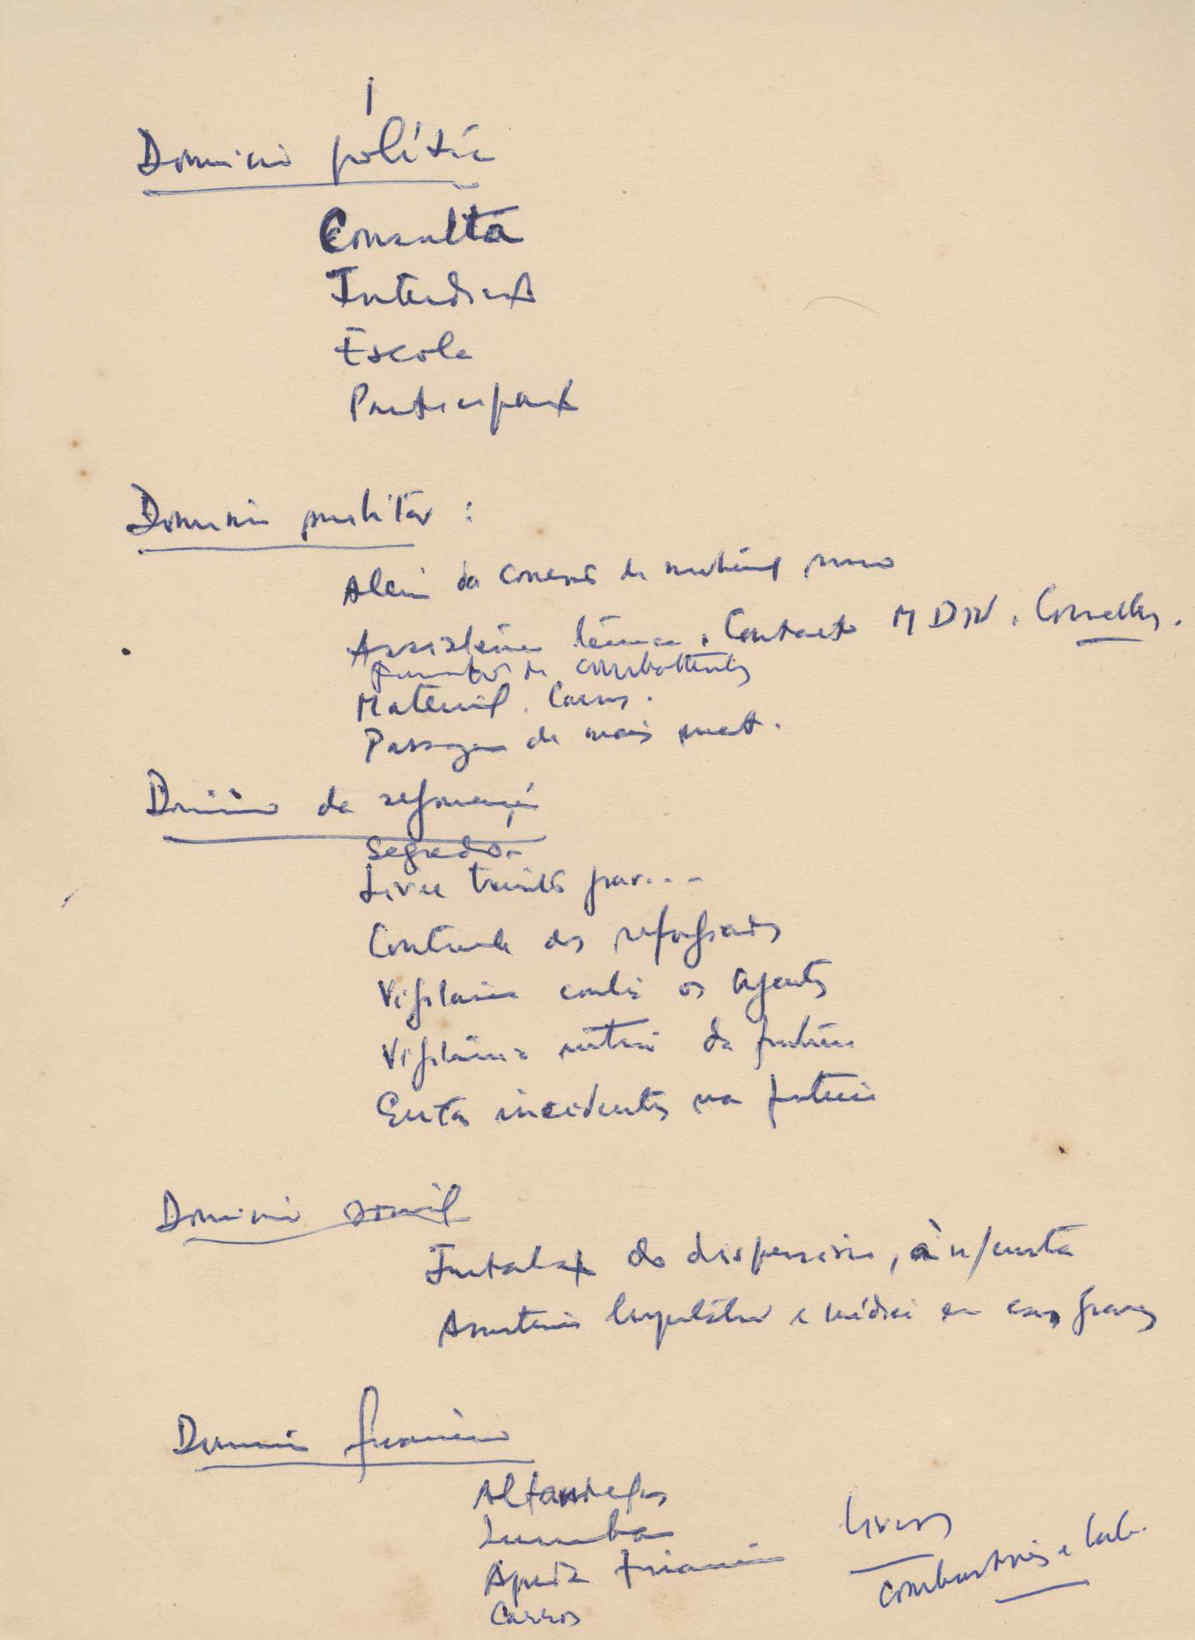 Domínio político
Consulta
Interdição
Escola
Participação
Domínio militar :
Além da de material
Assistência técnica . Contacto M D N . Conselhos .
combattentes
Material . Carros .
Passagem de mais mat .
Domínio da segurança
Segredo
Livre trânsito para . . .
Controle dos refugiados
Vigilância contra os agentes
Vigilância da fronteira
Evitar incidentes na fronteira
Domínio social
do dispensário , à n/ custa
Assistência hospitalar e médica em casos graves
Domínio financeiro
Alfândegas
Ajuda financeira
Carros
Livros
combustíveis e lub .